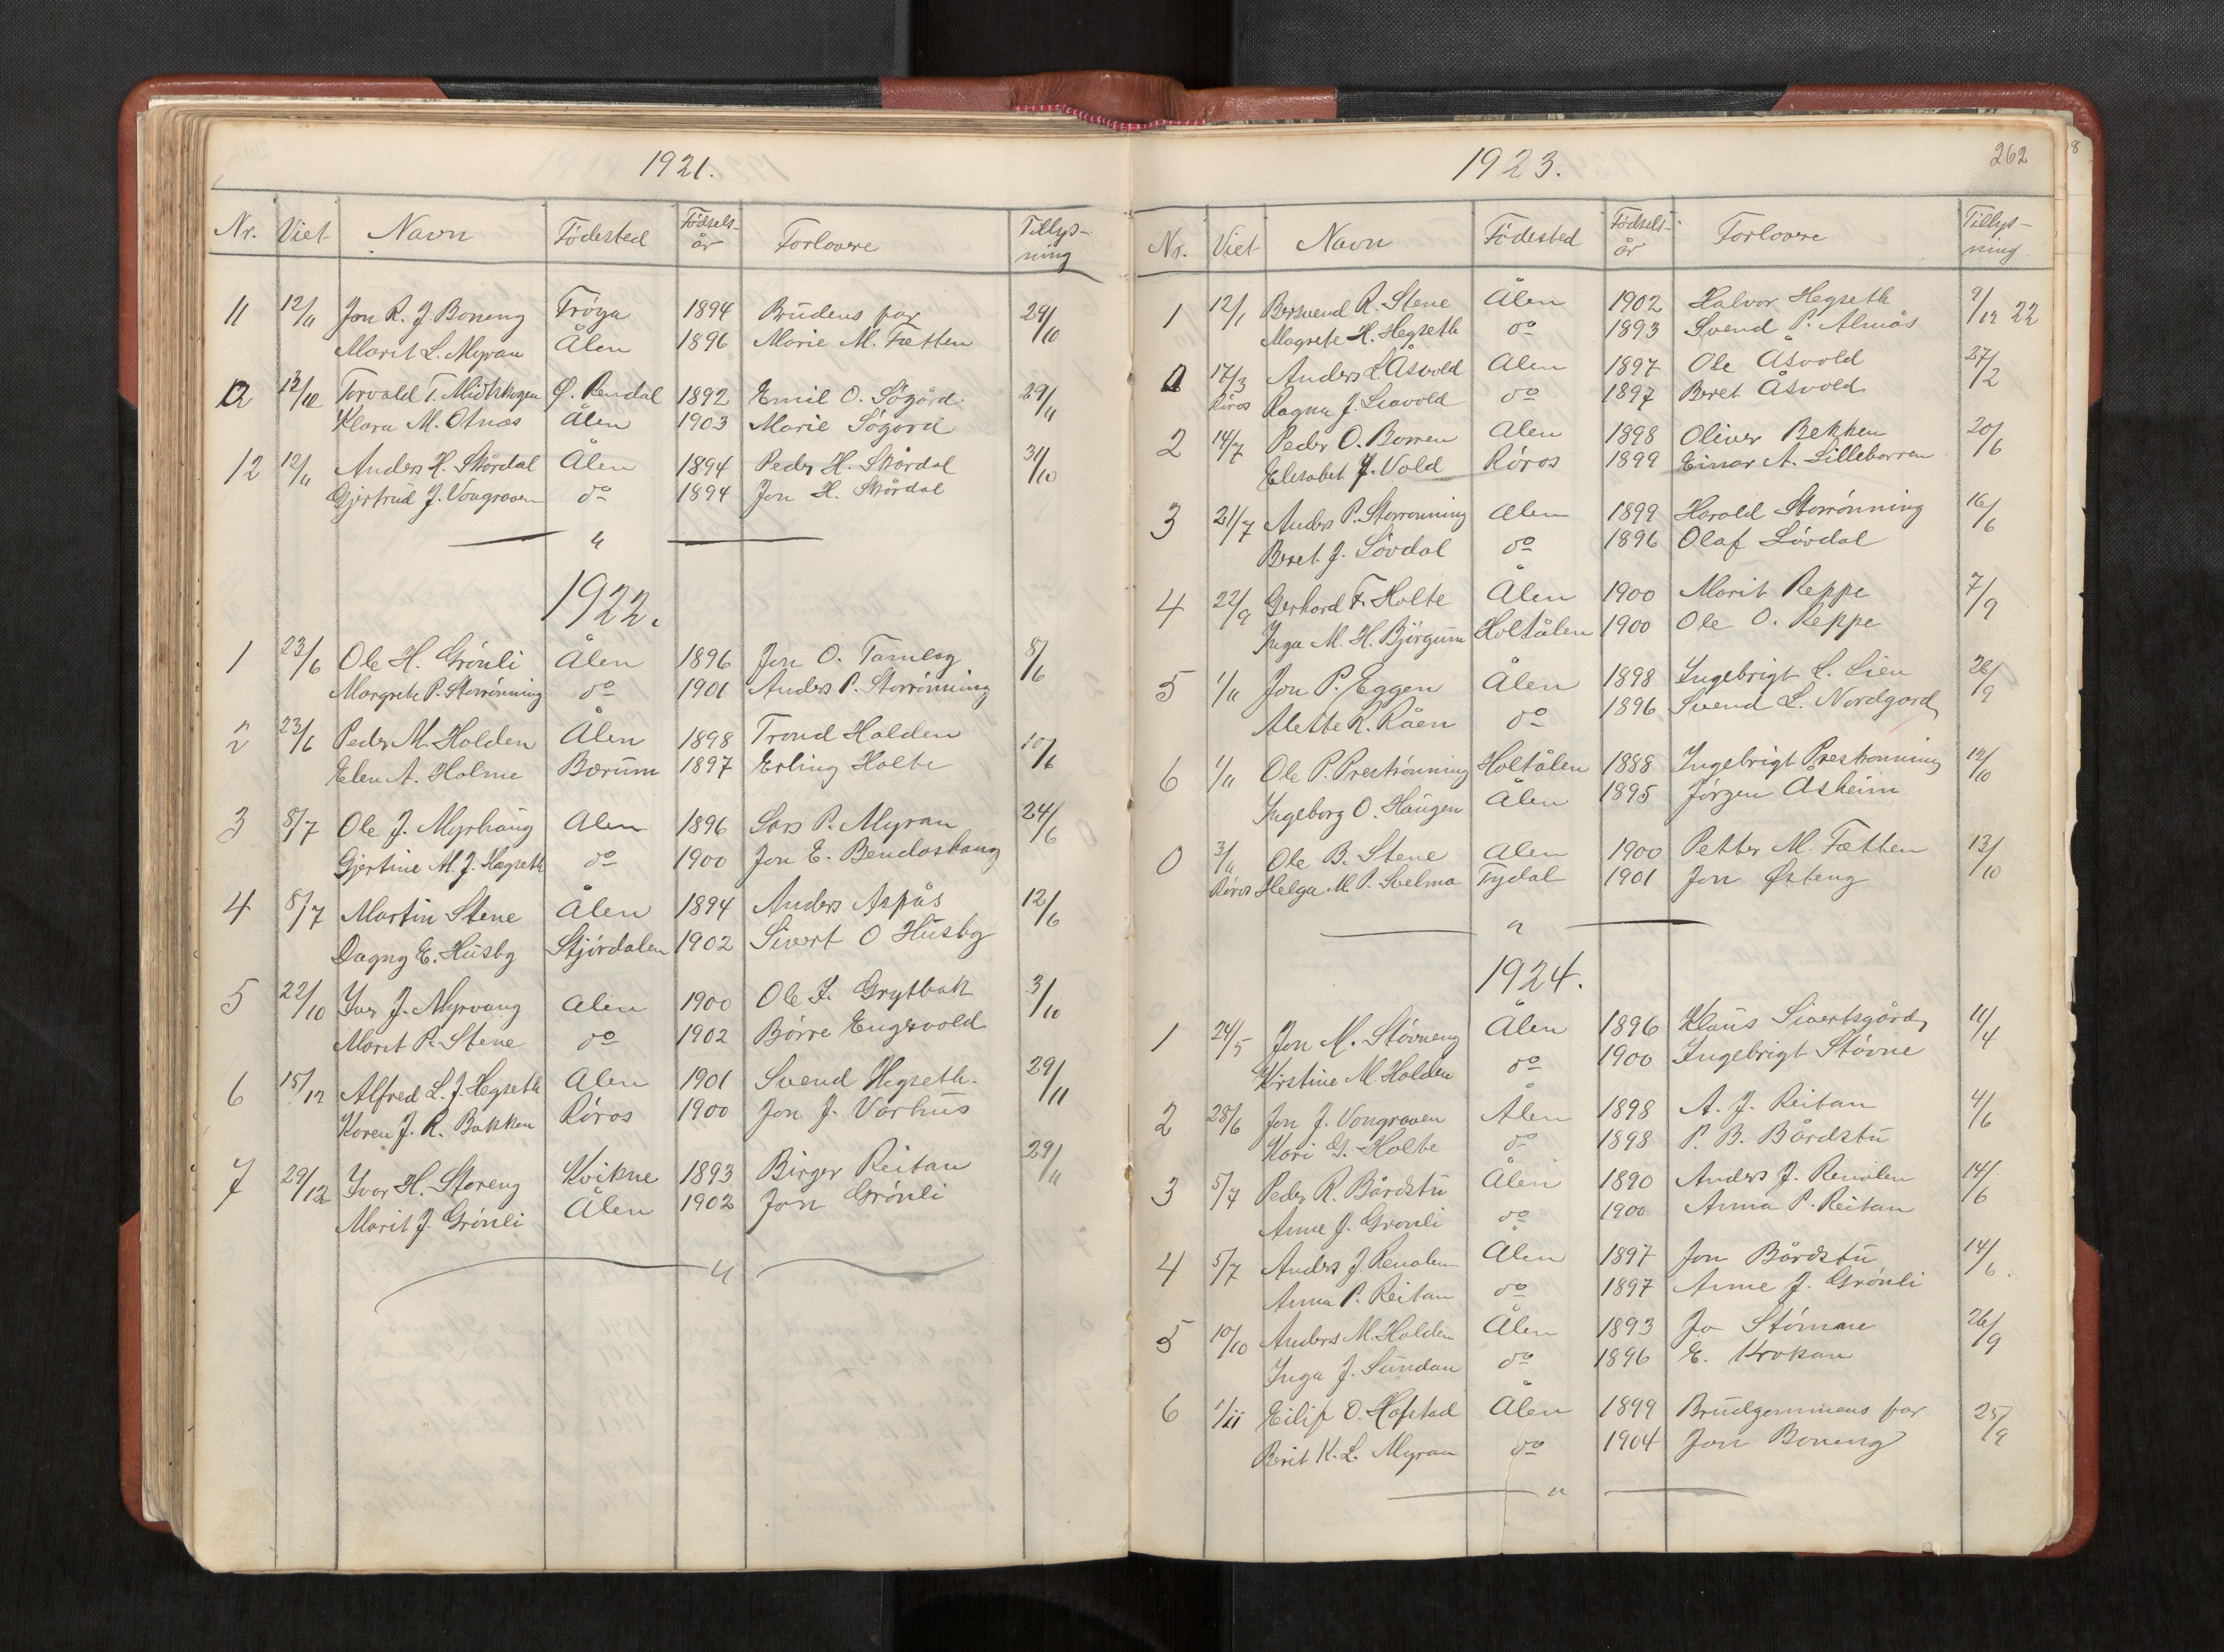 1921.
Nr. Viet Navn Fødested Fødsels-år Forlovere Tillys-ning
11 12/11 Jon R. J. Boneng Frøya 1894 Brudens far 29/10
Marit L. Myran Ålen 1896 Marie M. Fætten
12/12 Torvald T. Midtskogen Ø. Rendal 1892 Emil O. Sögård 29/11
Klara M. Otnæs Ålen 1903 Marie Sögård
12 12/11 Anders H. Skårdal Ålen 1894 Peder H. Skårdal 31/10
Gjertrud J. Vongraven do 1894 Jon H. Skårdal
1922.
1 23/6 Ole H. Grönli Ålen 1896 Jon O. Tamlag 8/6
Margrete P. Storrönning do 1901 Anders P. Storrönning
2 23/6 Peder M. Holden Ålen 1898 Trond Holden 10/6
Elen A. Holme Bærum 1897 Erling Holte
3 8/7 Ole J. Myrhaug Alen 1896 Lars P. Myran 24/6
Gjertine M. J. Hegseth do 1900 Jon E. Bendoshaug
4 8/7 Martin Stene Ålen 1894 Anders Aspås 12/6
Dagny E. Husby Stjördalen 1902 Sivert O Husby
5 22/10 Iver J. Myrvang Alen 1900 Ole J. Grytbak 3/10
Marit P. Stene do 1902 Börre Engesvold
6 15/12 Alfred L. J. Hegseth Alen 1901 Svend Hegseth 29/11
Karen J. R. Bakken Röros 1900 Jon J. Varhus
7 29/12 Ivar H. Storeng Kvikne 1893 Birger Reitan 29/11
Marit J. Grönli Ålen 1902 Jon Grönli
1923.
262
Nr. Viet Navn Fødested Fødsels-år Forlovere Tillys-ning
1 12/1 Bersvend R. Stene Ålen 1902 Halvor Hegseth 9/12 22
Magrete H. Hegseth do 1893 Svend P. Almås
0 17/3 Anders L. Åsvold Alen 1897 Ole Åsvold 27/2
Röros Ragna J. Liavold do 1897 Beret Åsvold
2 14/7 Peder O. Borren Alen 1898 Oliver Bekken 20/6
Elisabet J. Vold Röros 1899 Einar A. Lilleborren
3 21/7 Anders P. Storrönning Alen 1899 Harald Storrönning 16/6
Beret J. Lövdal do 1896 Olaf Lövdal
4 22/9 Gerhard F. Holte Ålen 1900 Marit Reppe 7/9
Inga M. H. Björgum Holtålen 1900 Ole O. Reppe
5 1/11 Jon P. Eggen Ålen 1898 Ingebrigt L. Lien 26/9
Alette K. Råen do 1896 Svend L. Nordgard
6 1/11 Ole P. Preströnning Holtålen 1888 Ingebrigt Preströnning 12/10
Ingeborg O. Haugen Ålen 1895 Jörgen Åsheim
0 3/11 Ole B. Stene Alen 1900 Petter M. Fætten 13/10
Röros Helga M. P. Svelmo Tydal 1901 Jon Østeng
1924.
1 24/5 Jon M. Stövneng Ålen 1896 Klaus Sivertsgård 11/4
Kirstine M. Holden do 1900 Ingebrigt Stövne
2 28/6 Jon J. Vongraven Ålen 1898 A. J. Reitan 4/6
Kari G. Holte do 1898 P. B. Bårdstu
3 5/7 Peder R. Bårdstu Ålen 1890 Anders J. Renolen 14/6
Anne J. Grönli do 1900 Anna P. Reitan
4 5/7 Anders J. Renolen Ålen 1897 Jon Bårdstu 14/6
Anna P. Reitan do 1897 Anne J. Grönli
5 10/10 Anders M. Holden Ålen 1893 Jo 26/9
Inga J. Sundan do 1896 E. Krokan
6 1/11 Eilif O. Hofstad Ålen 1899 Brudgommens far 25/9
Berit K. L. Myran do 1904 Jon Boneng